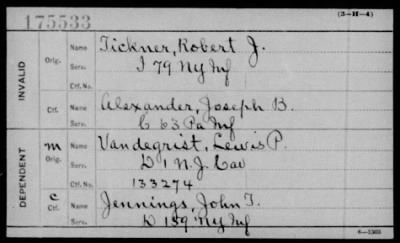 175533
(3-H-4)
INVALID
Orig.
Name
Tickner, Robert J.
Serv.
I 79 NY Inf
Ctf. No.
Ctf.
Name
Alexander, Joseph B.
Serv.
C 63 Pa Inf
DEPENDENT
m
Orig.
Name
Vandegrist, Lewis P.
Serv.
D 1 N.J. Cav
Ctf. No.
133274
C
Ctf.
Name
Jennings, John T.
Serv.
D 159 NY Inf